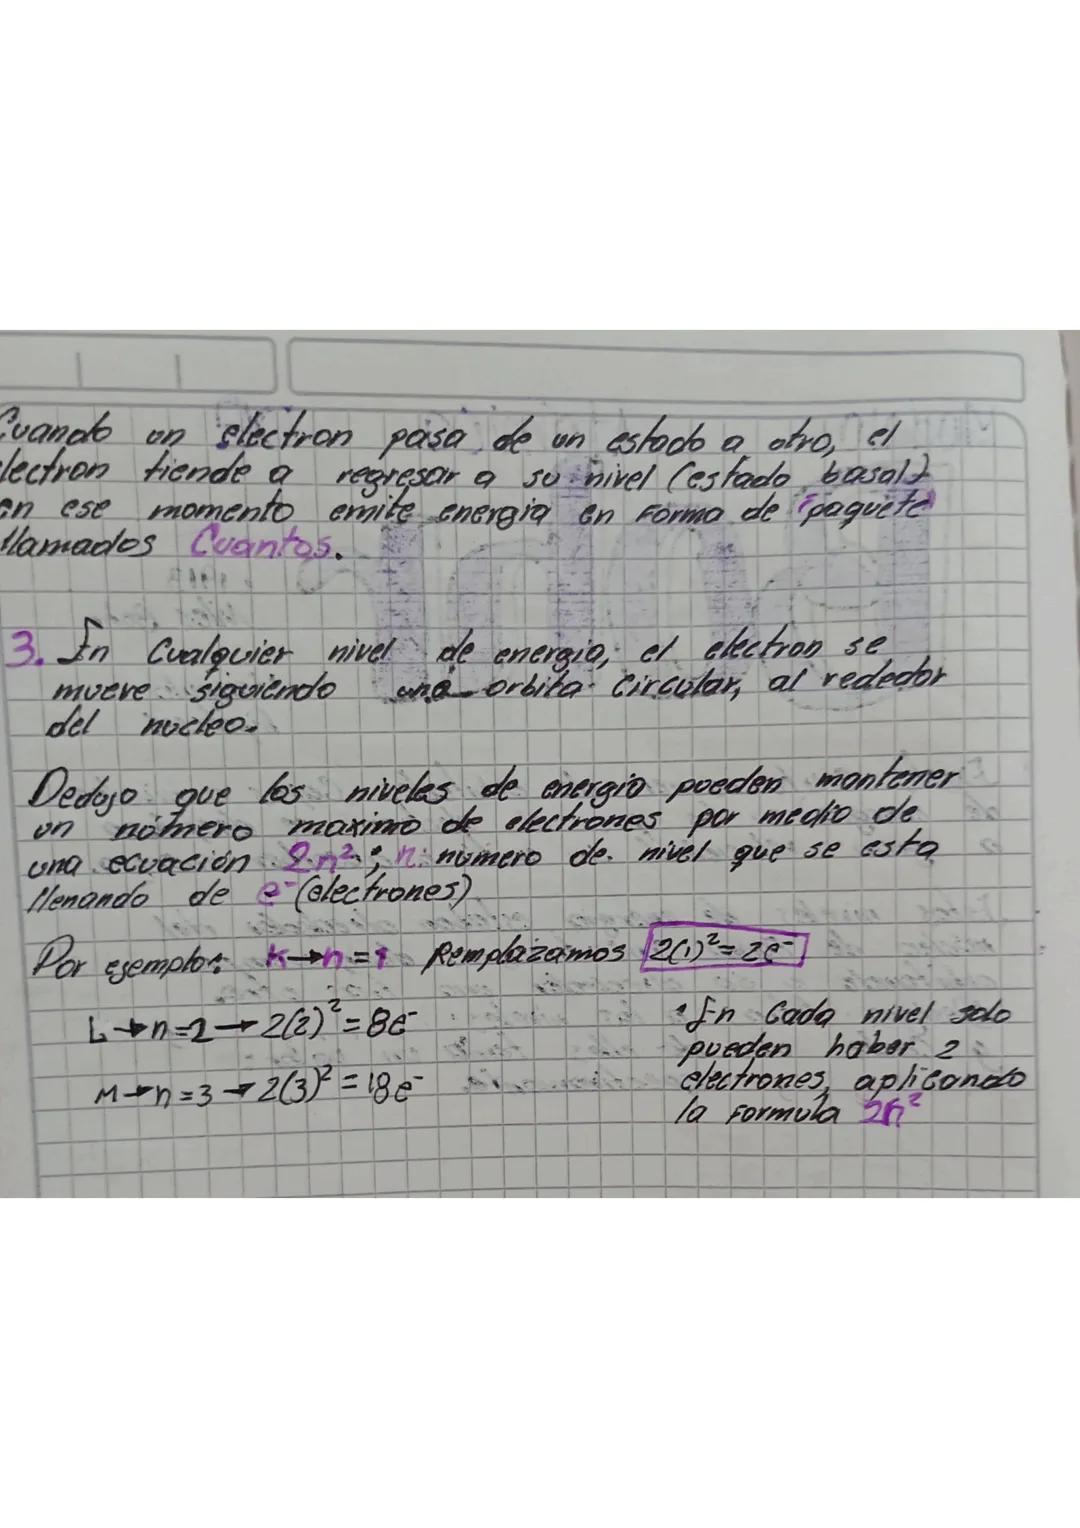 Cuando un electron pasa de un estado a otro, el
electron tiende a regresar a su nivel (estado basal)
en ese momento emite energia en Forma de "paquete"
llamados Cuantos.
3. En Cualquier nivel de energia, el electron se
mueve siguiendo una orbita circular, al rededor
del nucleo.
Dedujo que los niveles de energia pueden mantener
un número maximo de electrones por medio de
una ecuación 2.n²; n: numero de nivel que se esta
llenando de e⁻ (electrones)
Por ejemplo: K→n=1 Remplazamos 2(1)²=2e⁻
L→n=2→2(2)²=8e⁻
M→n=3→2(3)²=18e⁻
• En Cada nivel solo
pueden haber 2
electrones, aplicando
la Formula 2n²